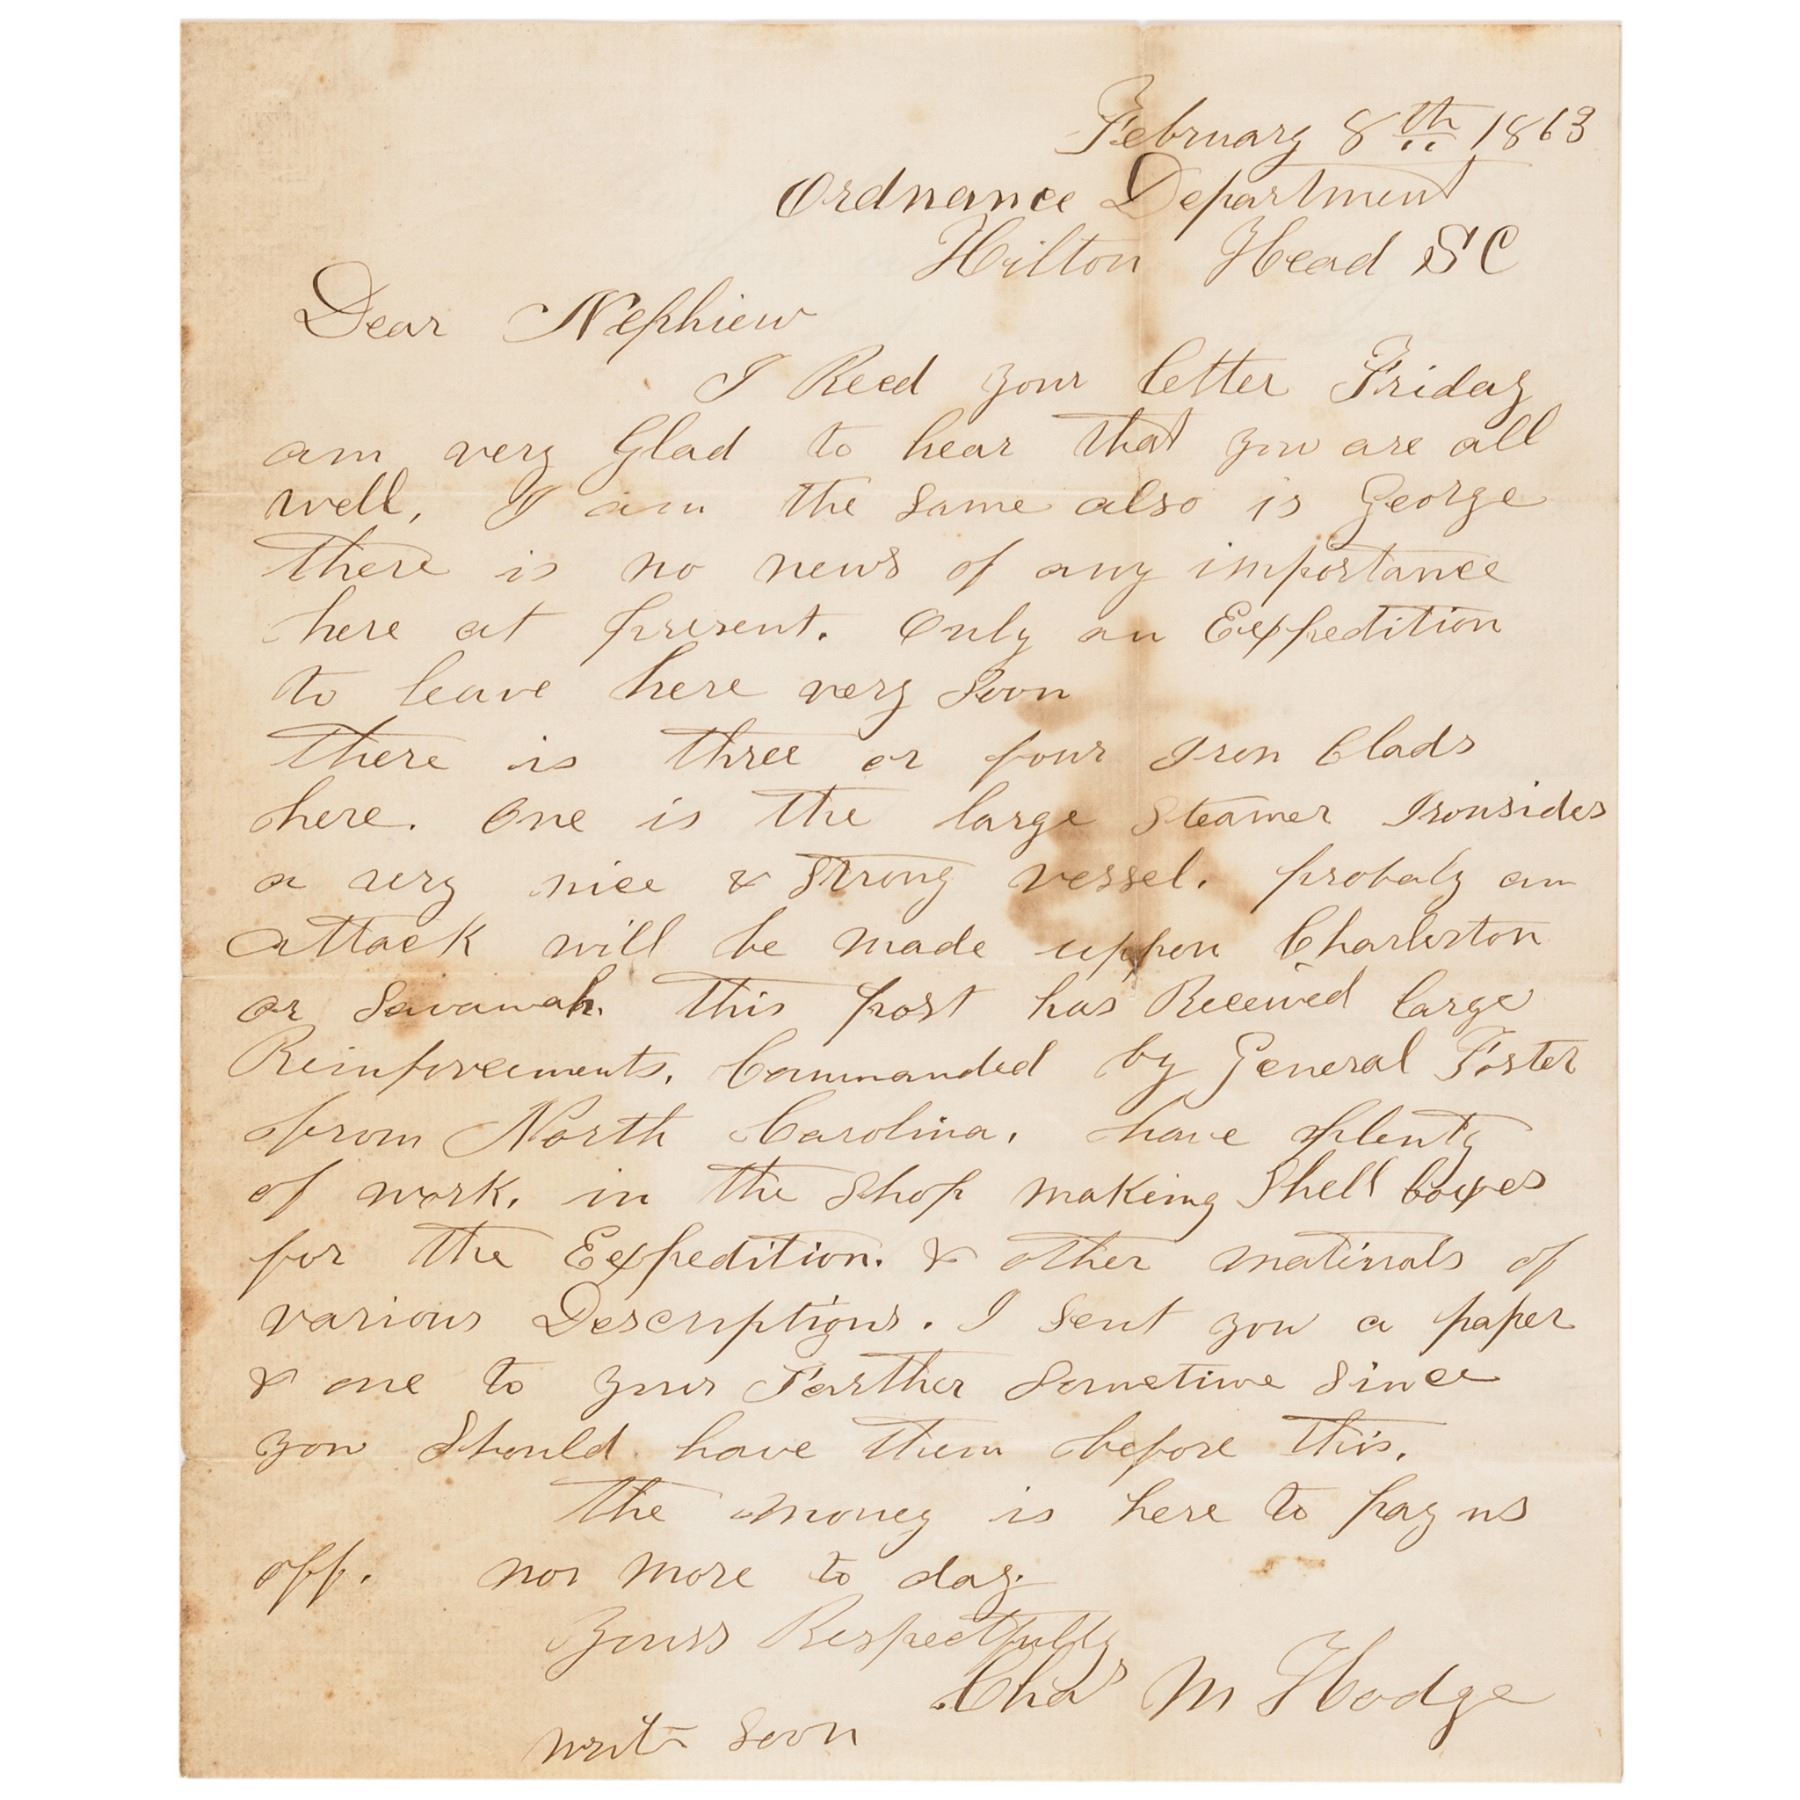 February 8th 1863
Ordnance Department
Hilton Head SC
Dear Nephiew
I Recd your letter Friday
am very Glad to hear that you are all
well, I am the same also is George
there is no news of any importance
here at present. Only an Expedition
to leave here very soon
there is three or four Iron Clads
here. One is the large Steamer Ironsides
a very nice & Strong vessel. probaly an
attack will be made uppon Charleston
or Savanah. This post has Received large
Reinforcements. Commanded by General Foster
from North Carolina. have plenty
of work. in the Shop making Shell boxes
for the Expedition. & other materials of
various Descriptions. I sent you a paper
& one to your Farther Sometime Since
you Should have them before this.
The money is here to pay us
off. nor more to day.
Yours Respectfully
Chas M Hodge
write soon